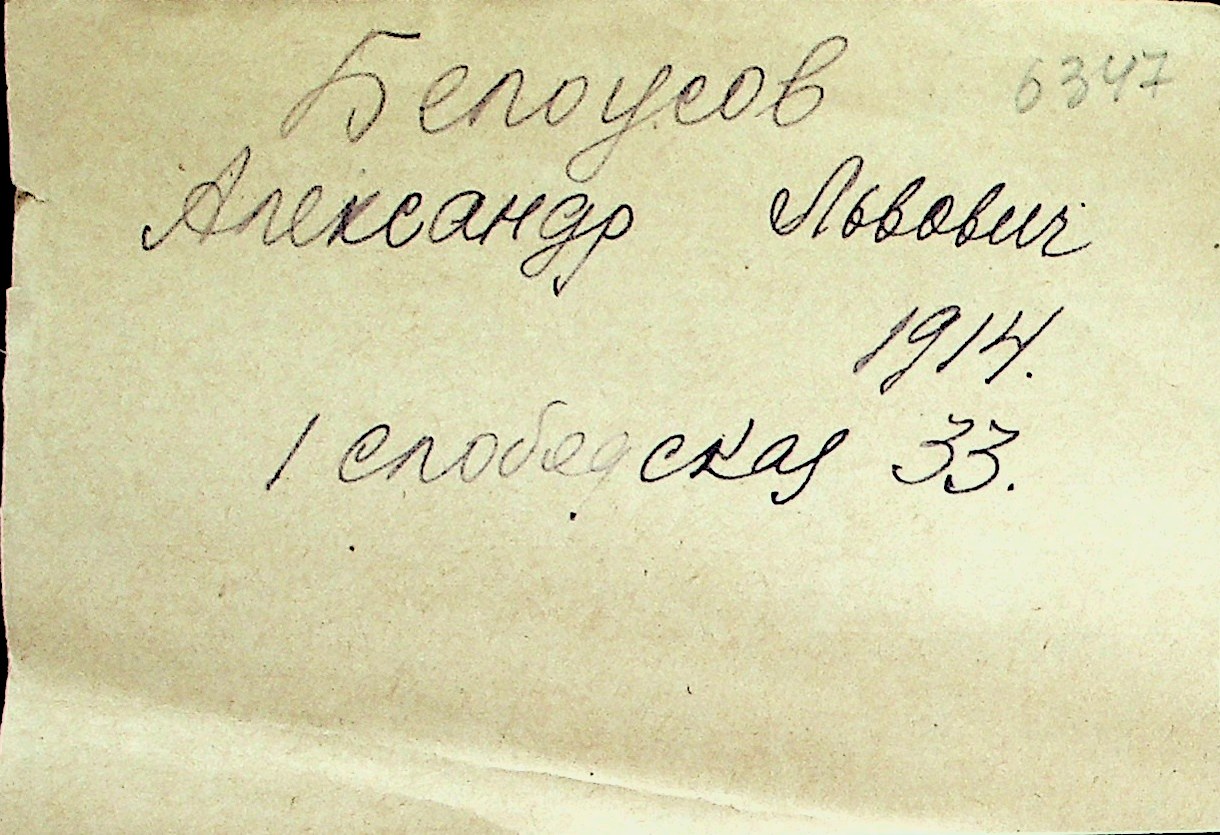 Белоусов 6347
Александр Львович
1914.
1 слободская 33.